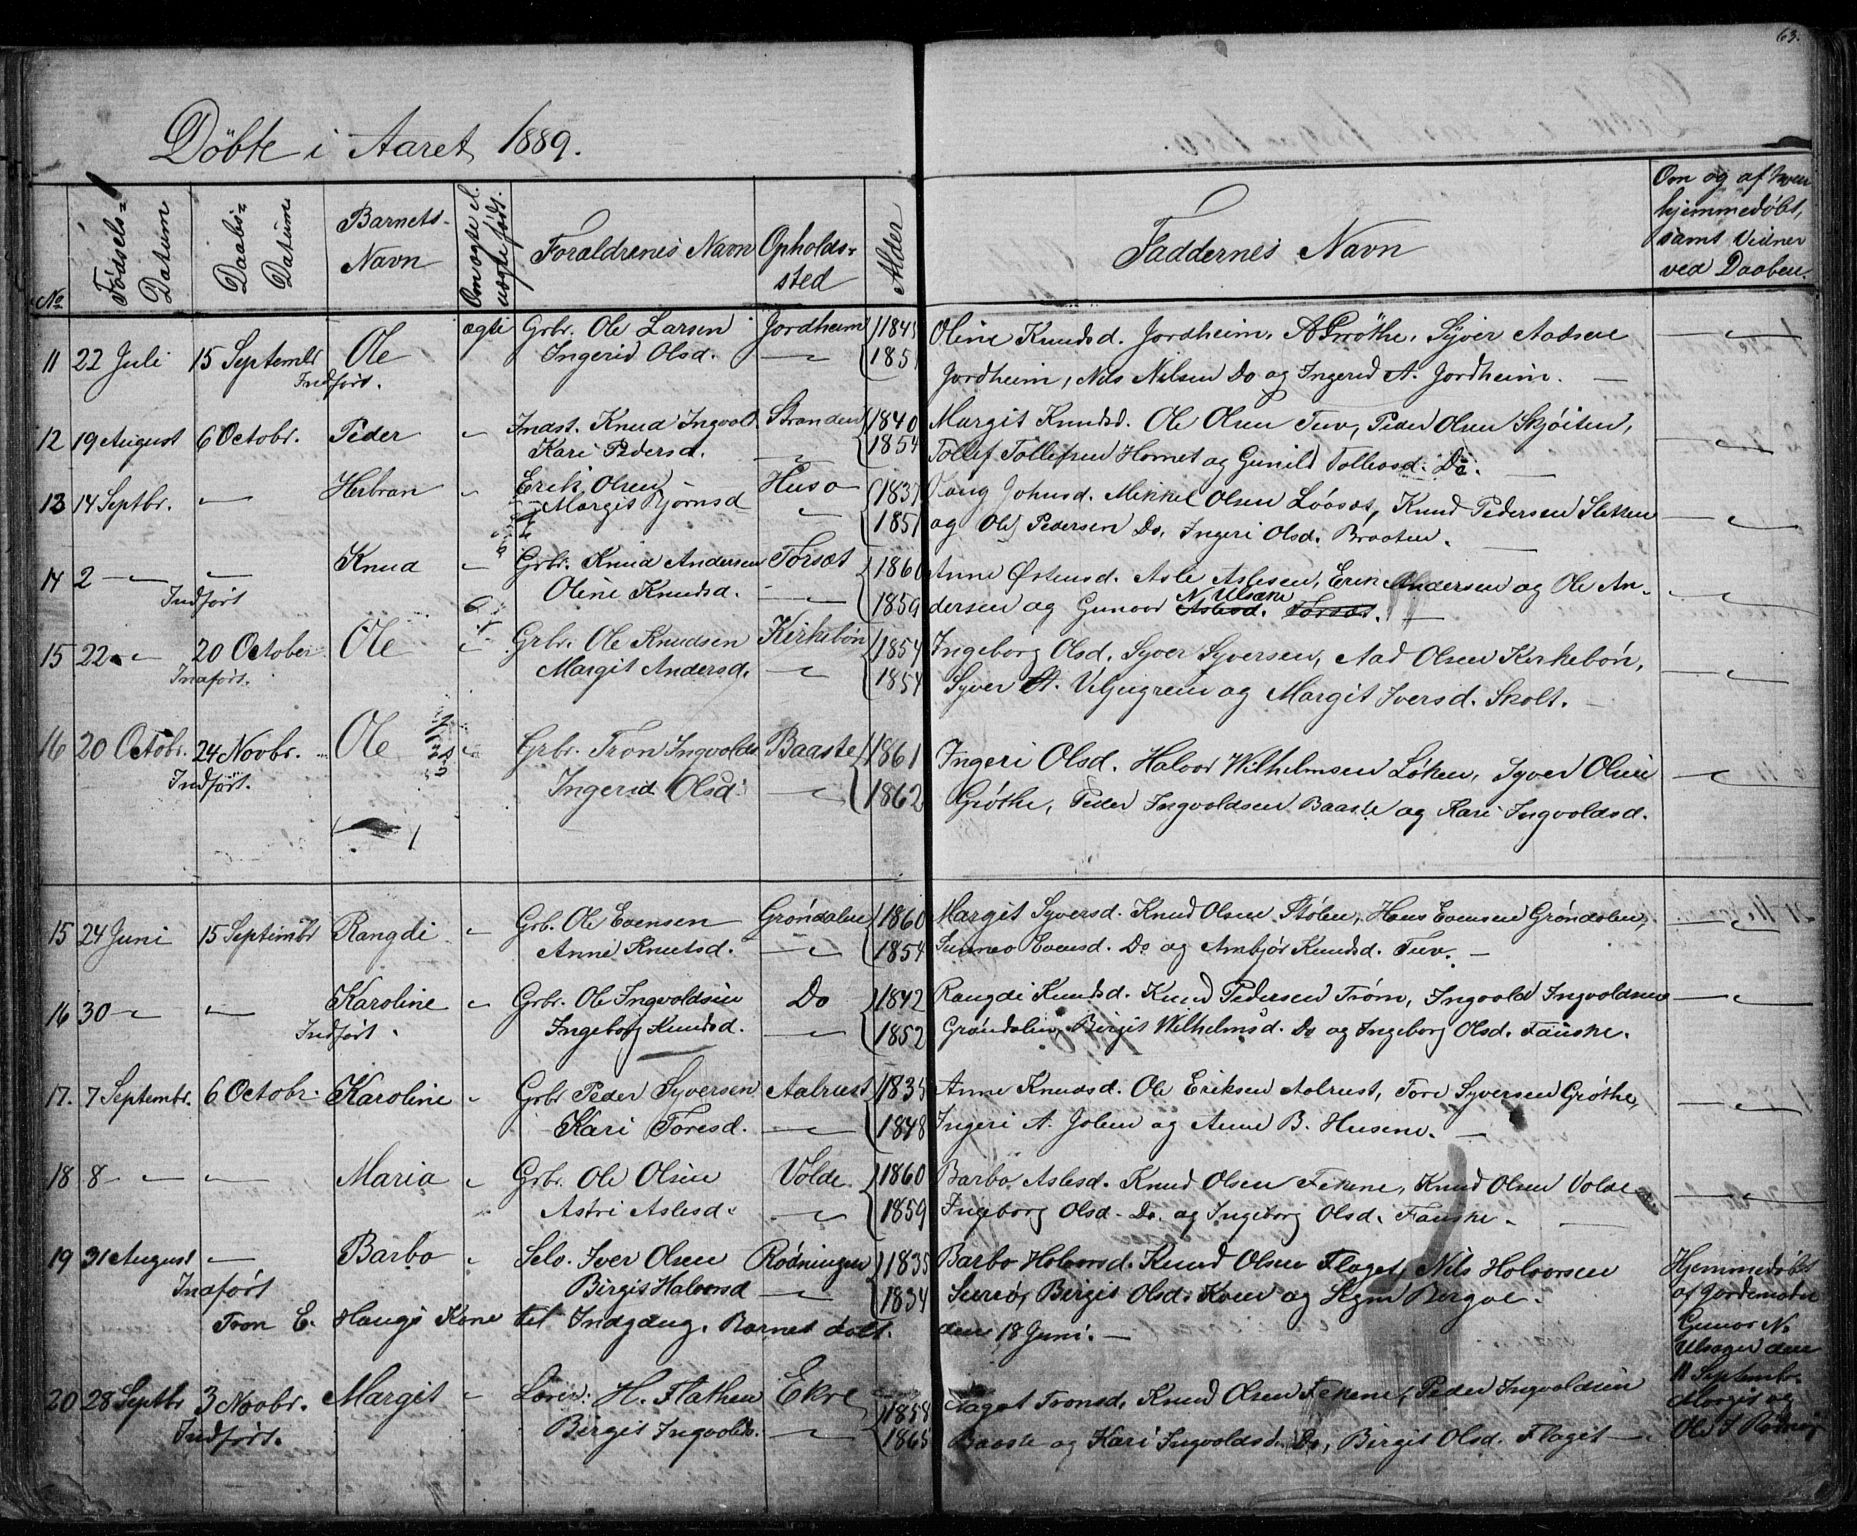 63.
Döbte i Aaret 1889.
No Fødsels= Datum Daabs= Datum Barnets Navn Om ægte el. uægte født. Forældrenes Navn Opholds= sted Alder Faddernes Navn Om og af hvem hjemmedøbt, samt Vidner ved Daaben.
11 22 Juli 15 Septembr Ole ægte Grbr. Ole Larsen Jordheim 1845 Oline Knudsd. Jordheim, A Grøthe, Syver Aadsene
Indført. Ingerid Olsd. 1851 Jordheim, Nils Nilsen Do og Ingerid A. Jordheim.
12 19 August 6 Octobr. Peder Indst. Knud Ingvold. Stranden 1840 Margit Knudsd. Ole Olsen Tuv, Peder Olsen Skjøiten,
Kari Pedersd. 1854 Tollef Tollefsen Hornet og Gunild Tollevsd. Do.
13 14 Septbr. Herbran Erik Olsen Huso 1837 Vaug Johnsd. Mikkel Olsen Løosæt, Knud Pedersen Sletten
Margit Bjørnsd 1851 og Ole Pedersen Do, Ingeri Olsd. Braaten.
14 2 Knud Grbr. Knud Andersen Torsæt 1860 Anne Østensd. Asle Aslesen, Erik Andersen og Ole An-
Indført Oline Knudsd. 1859 dersen og Gunvor Aslesd. Torsæt. N. Ulsaker
15 22 20 October Ole Grbr. Ole Knudsen Kirkebøn 1854 Ingeborg Olsd. Syver Syversen, Aad Olsen Kirkebøn,
Indført. Margit Andersd. 1854 Syver A. Viljugrein og Margit Iversd. Skolt.
16 20 Octobr. 24 Novbr. Ole Grbr. Tron Ingvolds Baaste 1861 Ingeri Olsd. Halvor Wilhelmsen Løken, Syver Olsen
Indført. Ingerid Olsd. 1862 Grøthe, Peder Ingvoldsen Baaste og Kari Ingvoldsd.
15 24 Juni 15 Septembr Rangdi Grb. Ole Evensen Grøndalen 1860 Margit Syversd. Knud Olsen Stølen, Hans Evensen Grøndalen,
Anne Knutsd. 1854 Sunnev Evensd. Do og Ambjør Knudsd. Tuv.
16 30 Karoline Grbr. Ole Ingvoldsen Do 1842 Rangdi Knudsd. Knud Pedersen Trøm, Ingvold Ingvoldsen
Indført. Ingeborg Knudsd. 1852 Grøndalen, Birgit Wilhelmsd. Do og Ingeborg Olsd. Fauske.
17. 7 Septembr. 6 Octobr. Karoline Grbr Peder Syversen Aalrust 1835 Anne Knudsd. Ole Eriksen Aalrust, Tore Syversen Grøthe,
Kari Toresd. 1848 Ingeri A. Jolen og Anne B. Husene.
18 8 Maria Grbr. Ole Olsen Volde 1860 Barbo Aslesd. Knud Olsen Fekene, Knud Olsen Volde
Astri Aslesd. 1859 Ingeborg Olsd. Do. og Ingeborg Olsd. Fauske.
19 31 August Barbo Selv. Iver Olsen Rødningen 1835 Barbo Halvorsd. Knud Olsen Flaget, Nils Halvorsen Hjemmedøbt
Indført Birgit Halvorsd 1834 Surrø, Birgit Olsd. og Bergve. af Jordemoder
Tron E. Haugs Kone til Indgang. Barnet døbt. den 18 Juni. Gunvor N. Ulsager den
20 28 Septbr 3 Novbr. Margit Lærer. H. Flathen Ekre 1858 Tronsd. Knud Olsen Fekene, Peder Ingvoldsen 11 Septembr. Margit og
Indført. Birgit Ingvoldsd. 1865 Baaste og Kari Ingvoldsd. Do, Birgit Olsd. Flaget Ole I